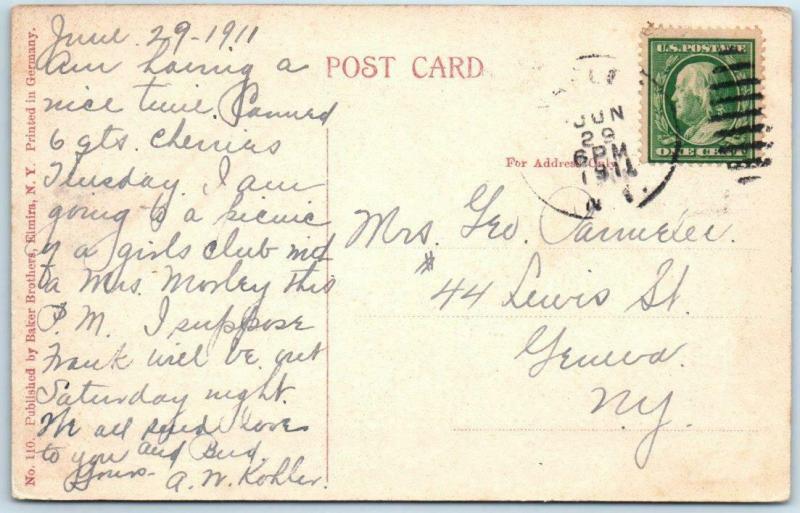 June 29-1911
Am having a
nice time. Canned
6 qts. cherries
Tuesday. I am
going to a picnic
of a girls club
a Mrs. Morley this
P.M. I suppose
Frank will be out
Saturday night.
We all send love
to you and Bud.
Yours- A. W. Kohler.
POST CARD
For Address Only
U.S. POSTAGE
ONE CENT
JUN
29
6 PM
1911
N.Y.
Mrs. Geo. Parmelee.
# 44 Lewis St.
Geneva.
N.Y.
No. 110. Published by Baker Brothers, Elmira, N. Y. Printed in Germany.